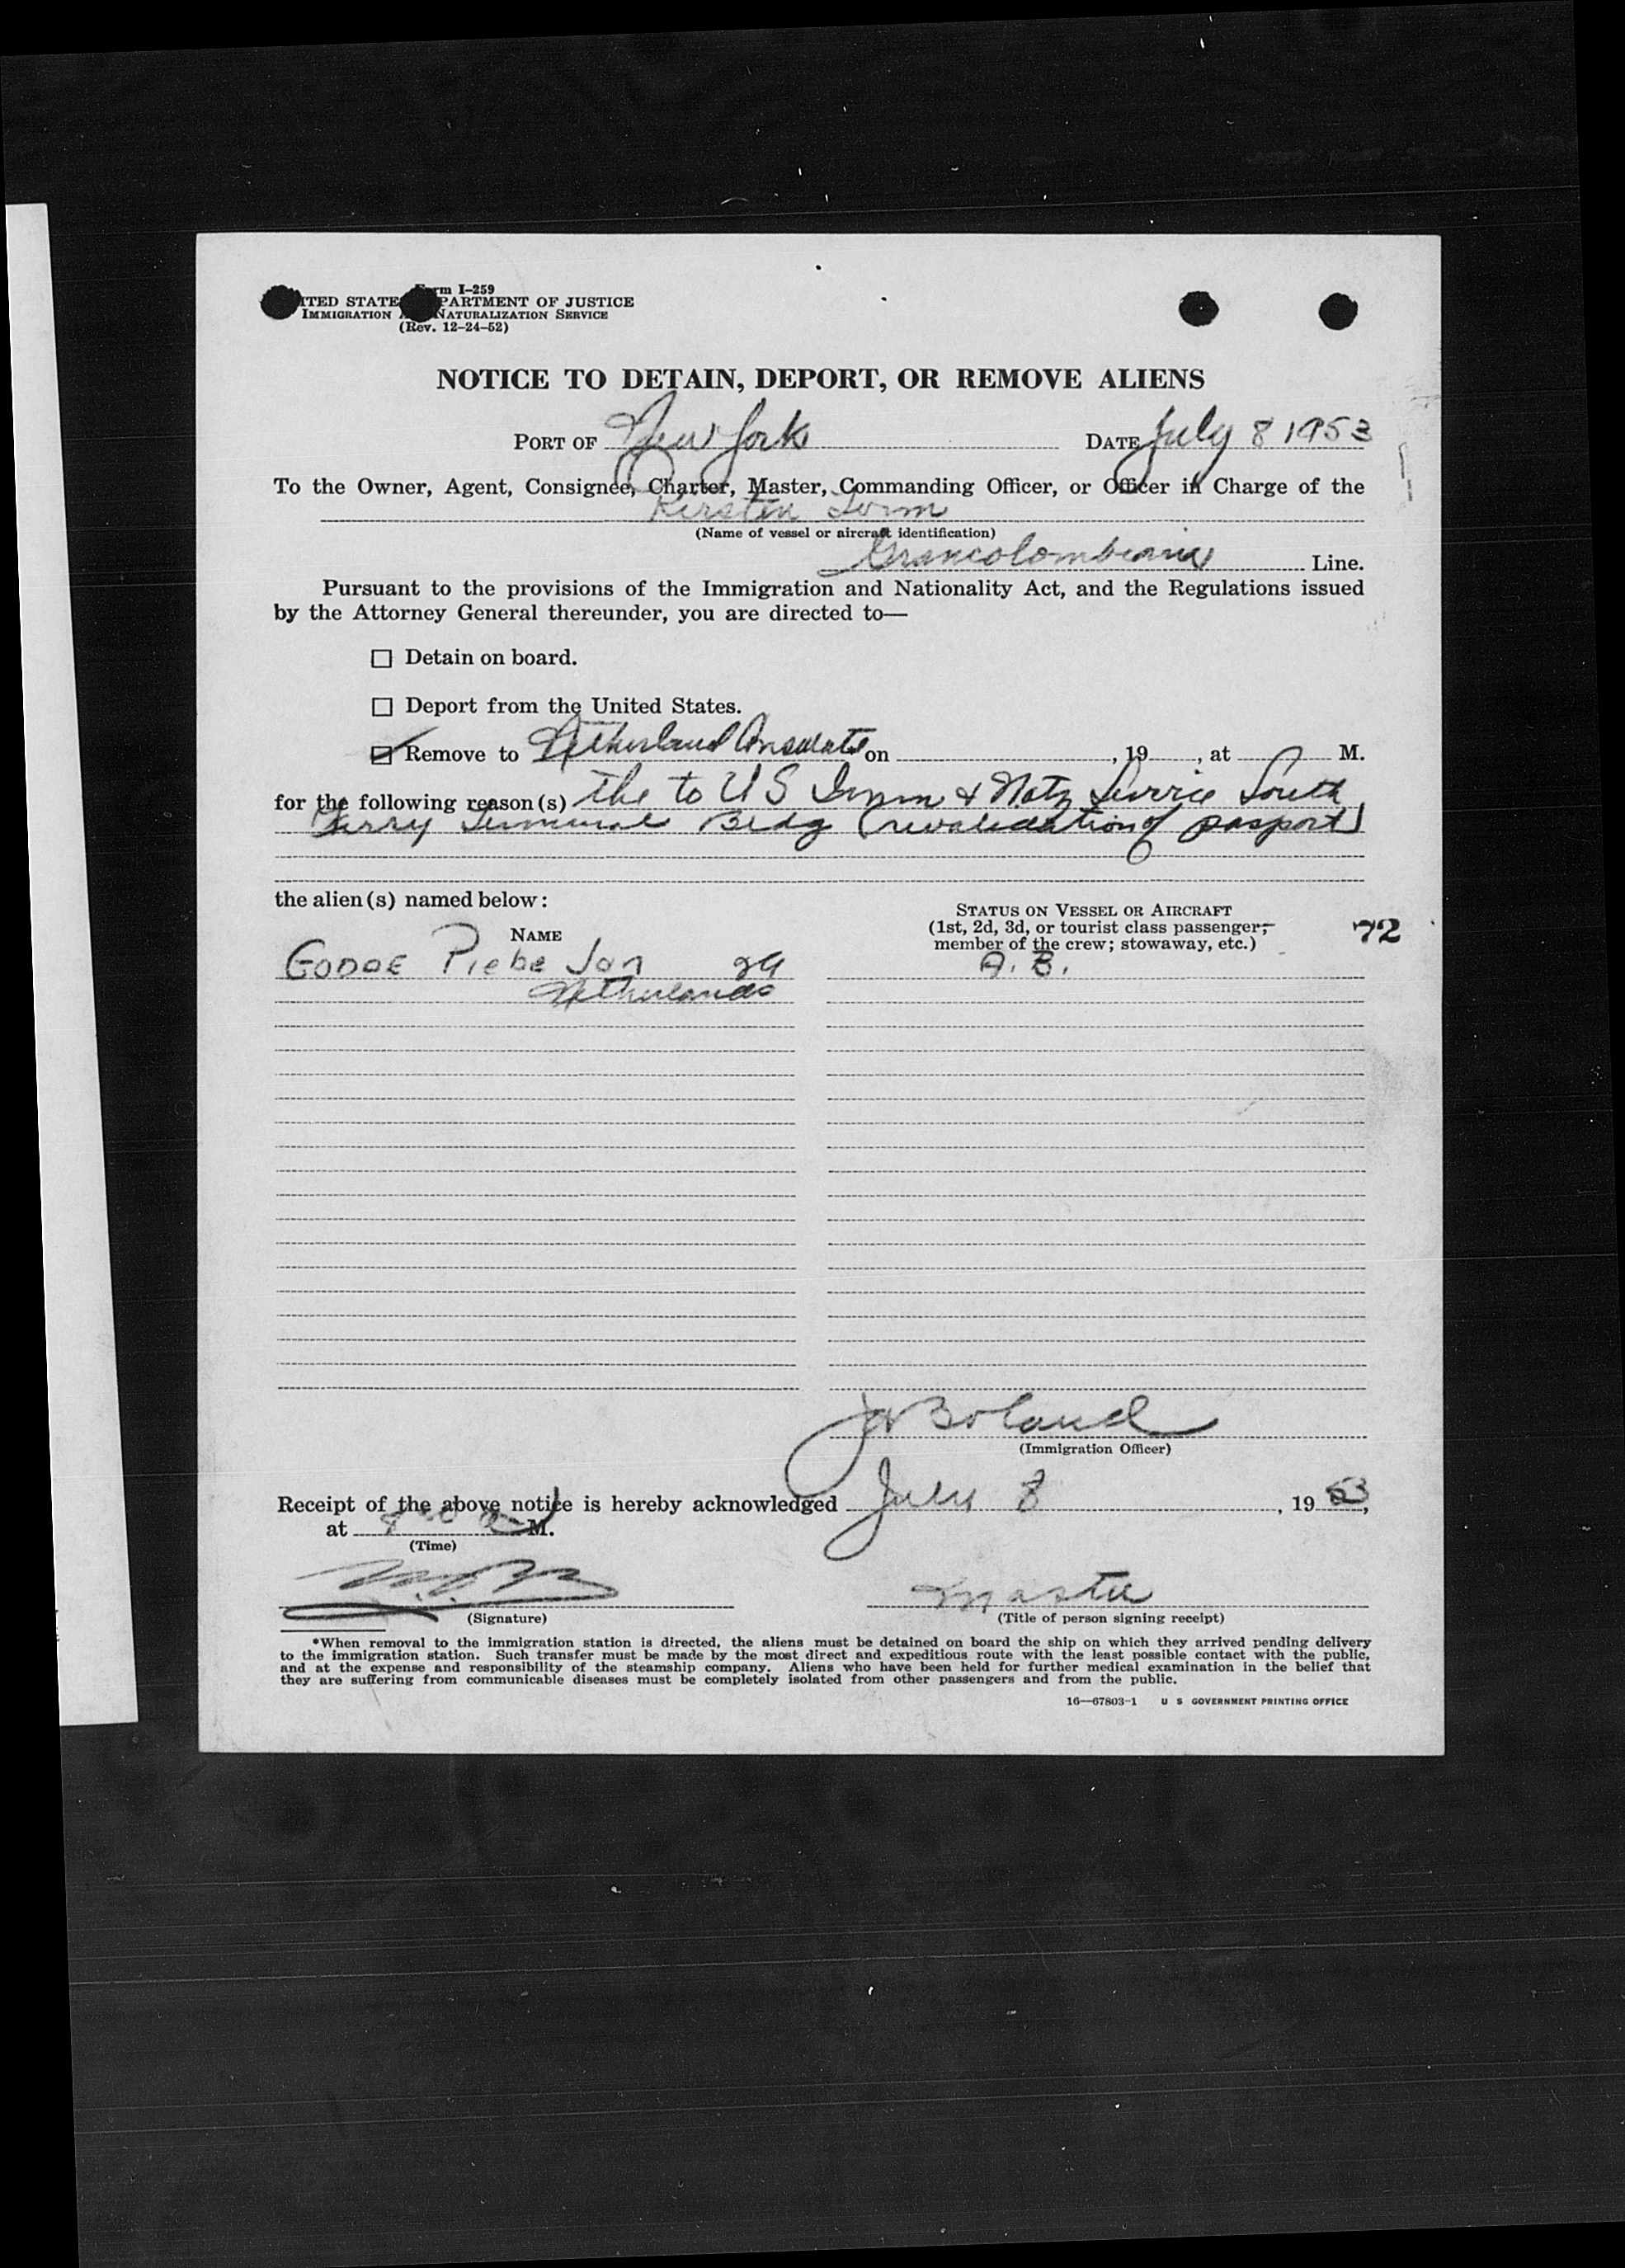 Form I-259
UNITED STATES DEPARTMENT OF JUSTICE
IMMIGRATION AND NATURALIZATION SERVICE
(Rev. 12-24-52)
NOTICE TO DETAIN, DEPORT, OR REMOVE ALIENS
PORT OF New York DATE July 8 1953
To the Owner, Agent, Consignee, Charter, Master, Commanding Officer, or Officer in Charge of the
Kirsten Torm
(Name of vessel or aircraft identification)
Grancolombiana Line.
Pursuant to the provisions of the Immigration and Nationality Act, and the Regulations issued
by the Attorney General thereunder, you are directed to—
☐ Detain on board.
☐ Deport from the United States.
☑ Remove to Netherland Consulate on , 19 , at M.
for the following reason(s) the to U S Imm & Natz Service South
Ferry Terminal Bldg (revalidation of pasport)
the alien(s) named below:
NAME
STATUS ON VESSEL OR AIRCRAFT
(1st, 2d, 3d, or tourist class passenger;
member of the crew; stowaway, etc.)
72
GODOE Piebe Jan 29 A. B.
Netherlands
Boland
(Immigration Officer)
Receipt of the above notice is hereby acknowledged July 8, 19 53,
at M.
(Time)
Master
(Signature) (Title of person signing receipt)
*When removal to the immigration station is directed, the aliens must be detained on board the ship on which they arrived pending delivery
to the immigration station. Such transfer must be made by the most direct and expeditious route with the least possible contact with the public,
and at the expense and responsibility of the steamship company. Aliens who have been held for further medical examination in the belief that
they are suffering from communicable diseases must be completely isolated from other passengers and from the public.
16—67803-1 U S GOVERNMENT PRINTING OFFICE